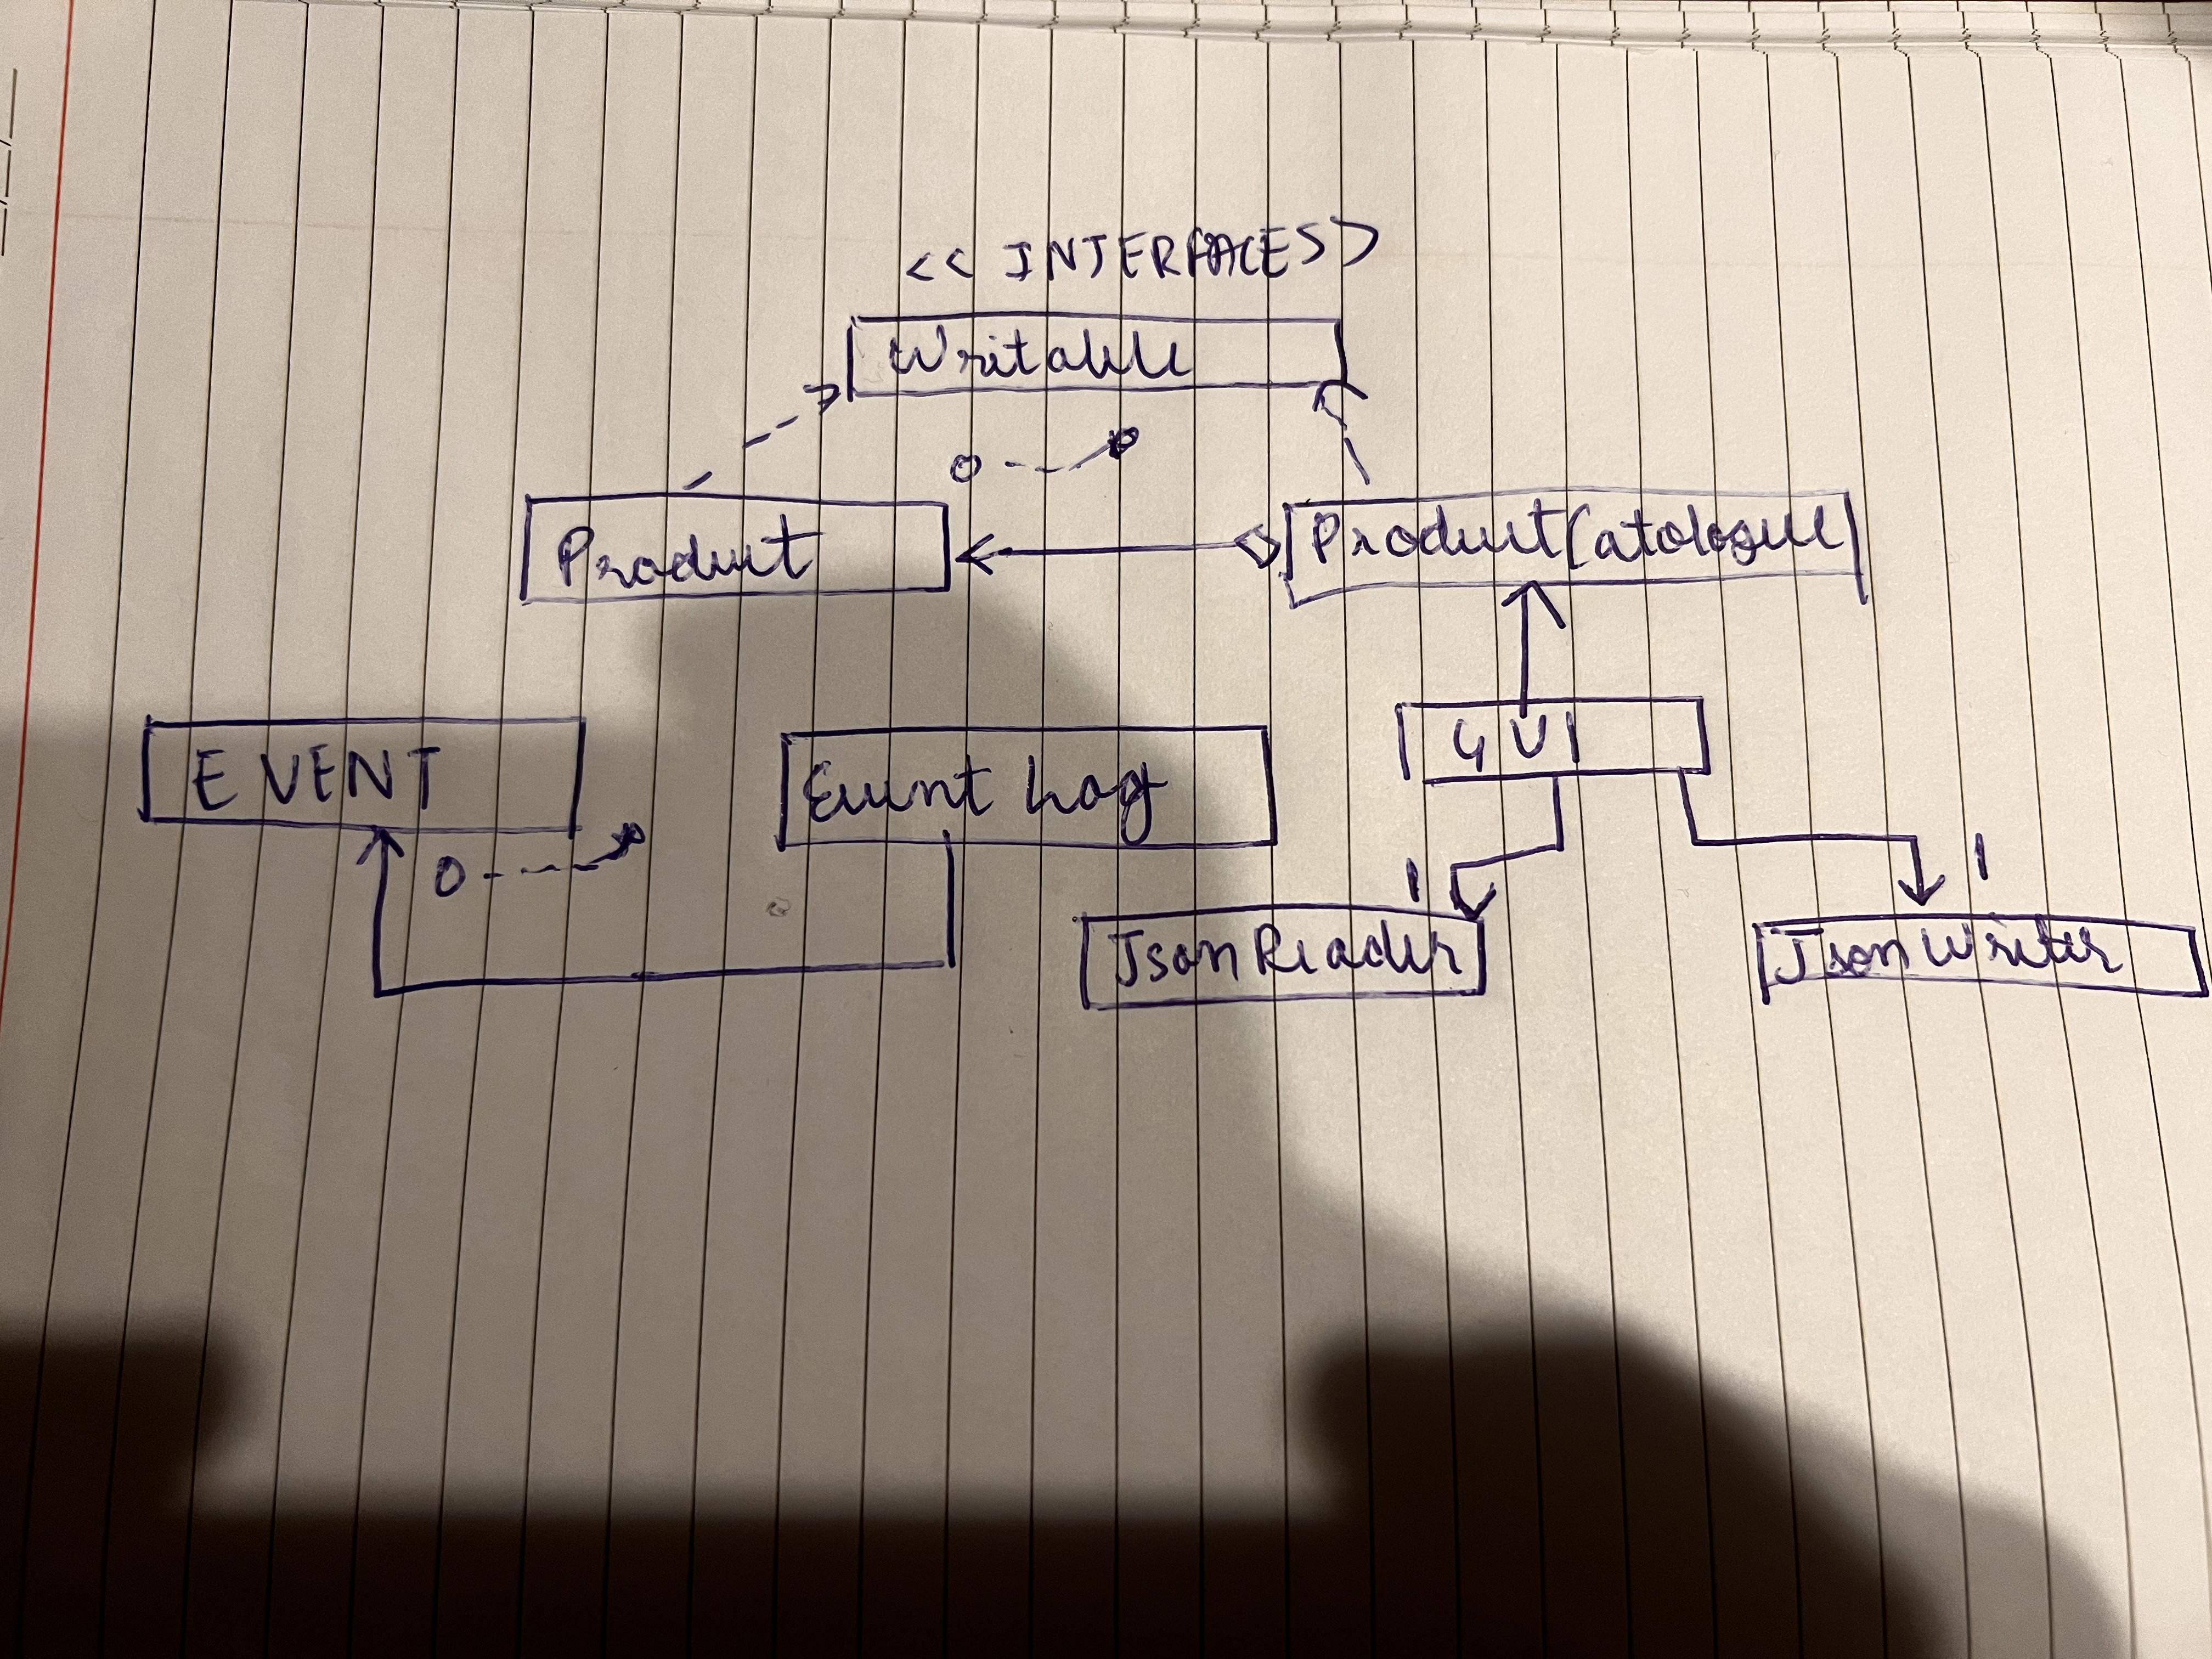 << INTERFACES>
Writable
Product
0---->*
ProductCatologue
EVENT
0---->*
Event Log
GUI
Json Reader
1
Json Writer
1